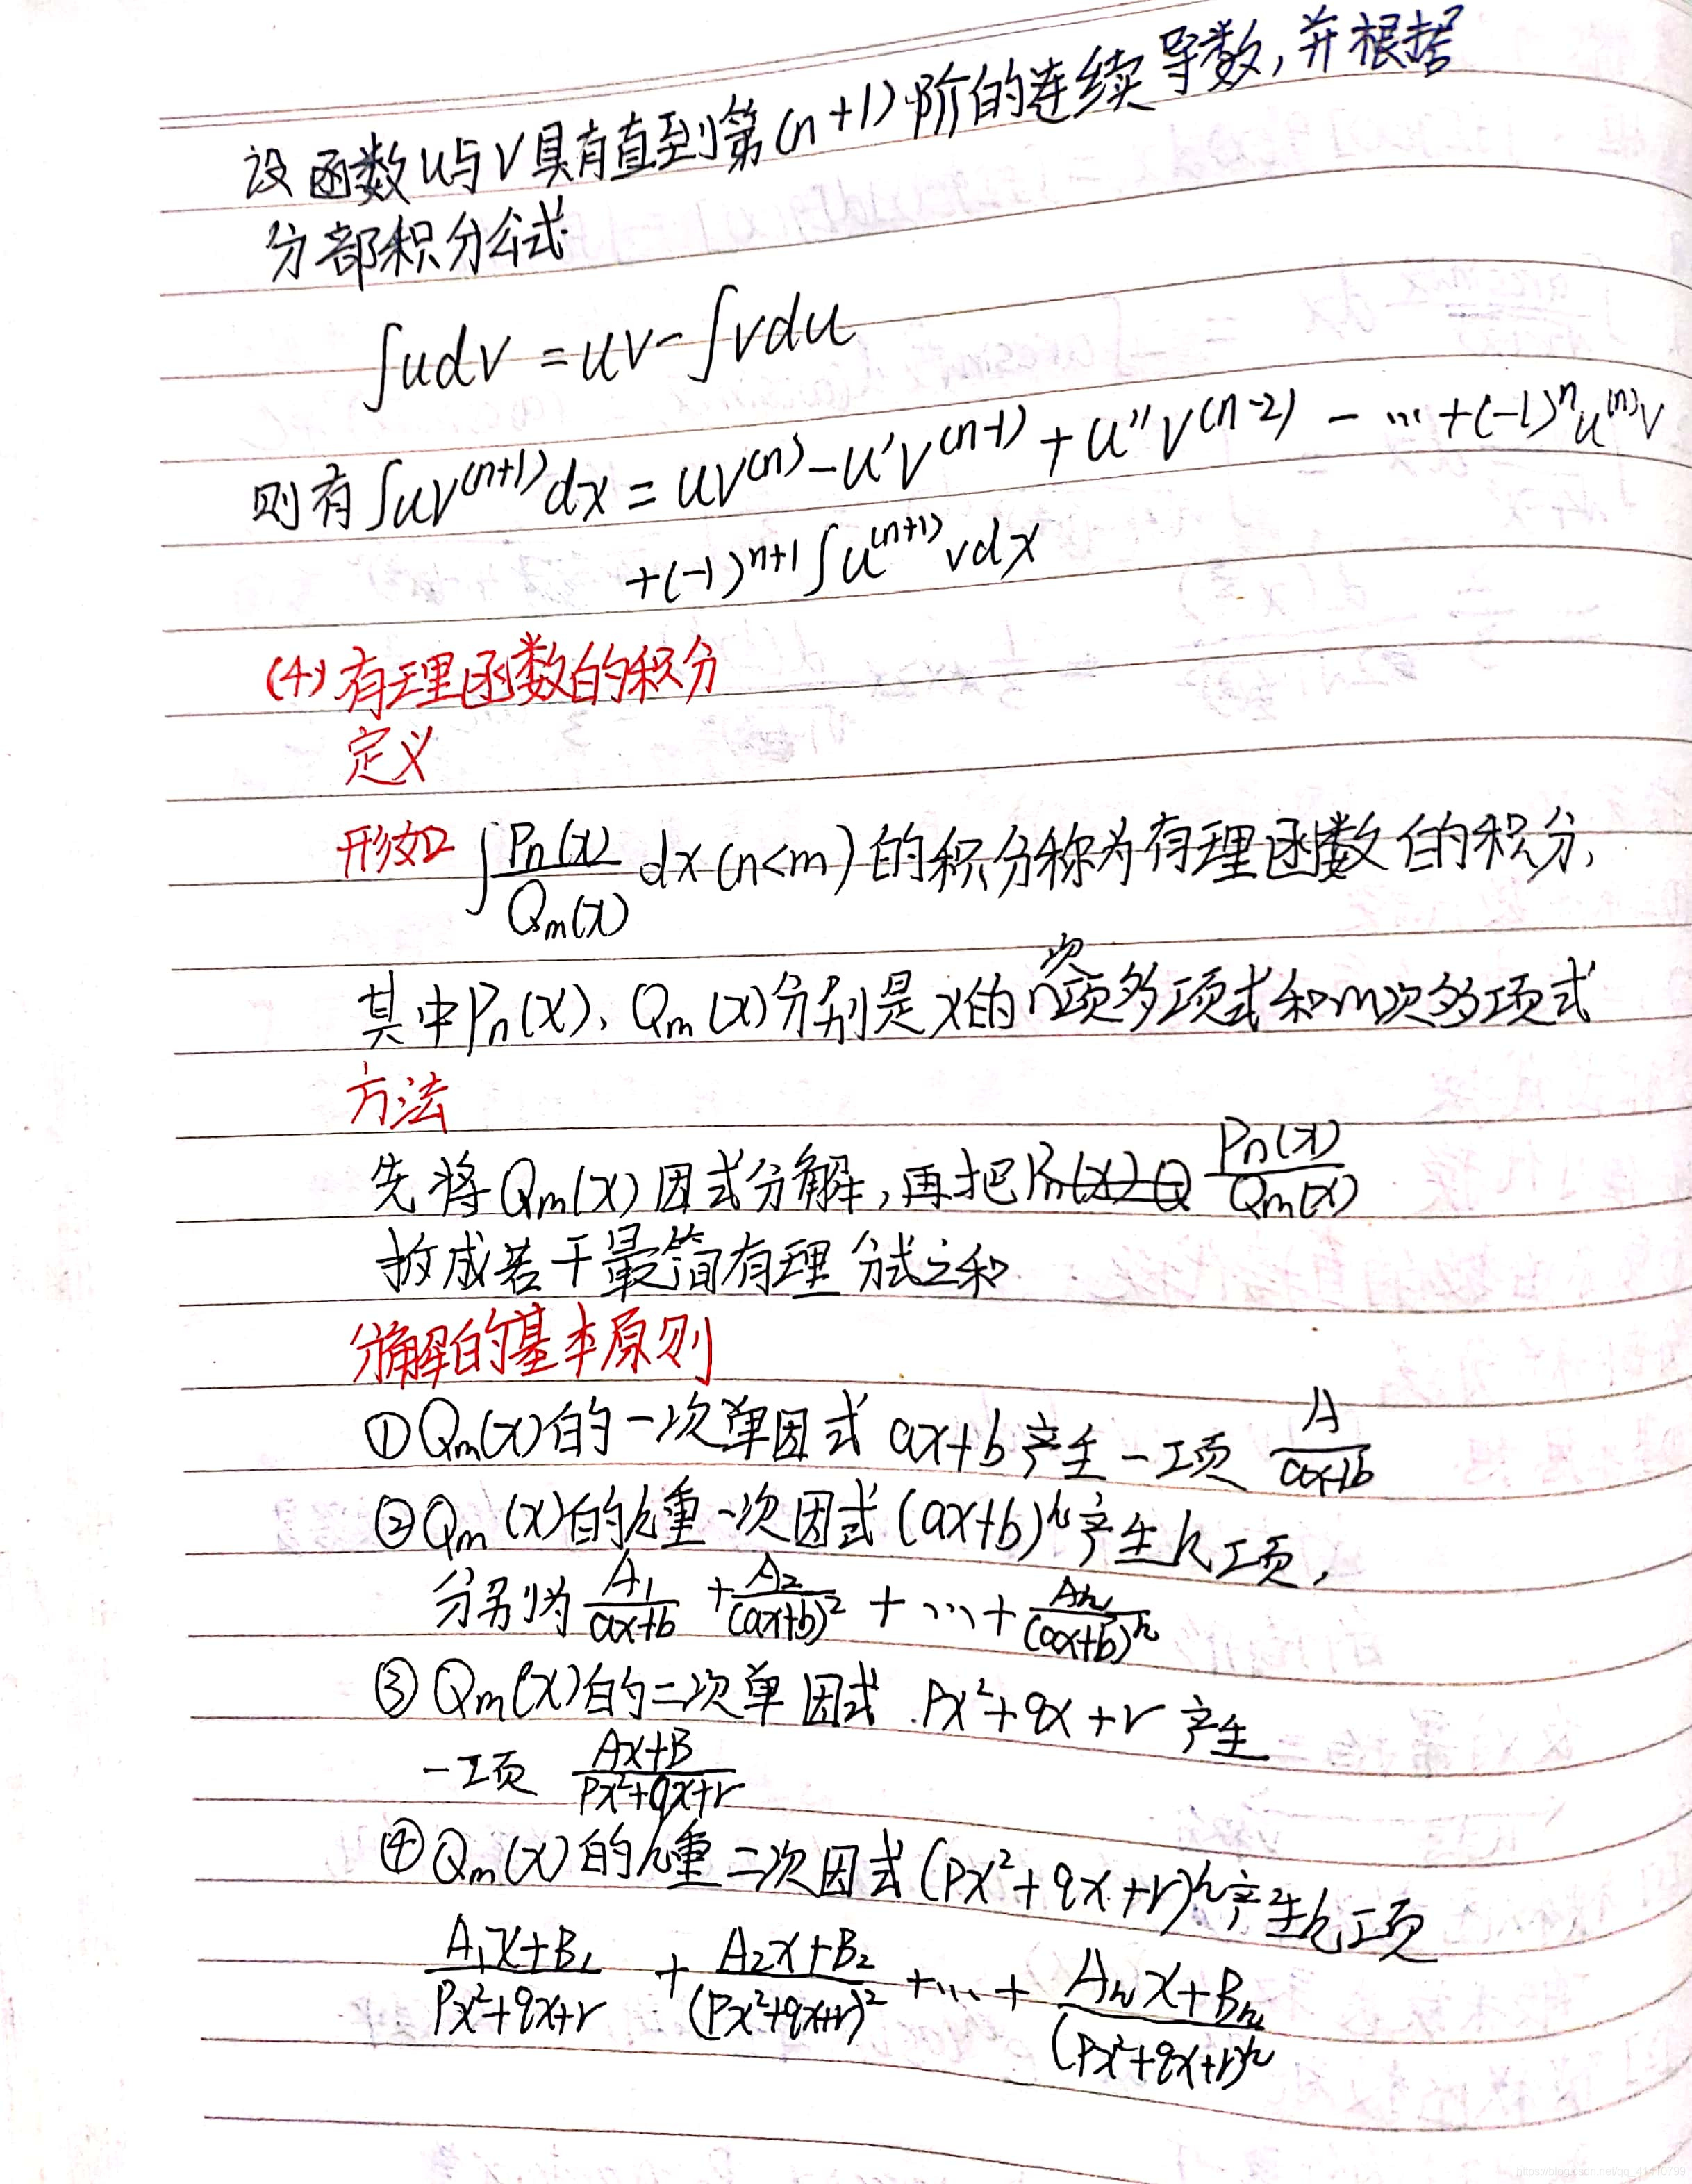 设函数u与v具有直到第(n+1)阶的连续导数,并根据
分部积分公式
∫udv = uv - ∫vdu
则有∫uv^(n+1)dx = uv^(n) - u'v^(n-1) + u''v^(n-2) - … + (-1)^n u^(n)v
+(-1)^{n+1}∫u^(n+1)vdx
(4)有理函数的积分
定义
形如 ∫Pn(x)/Qm(x) dx (n<m)的积分称为有理函数的积分,
其中Pn(x)、Qm(x)分别是x的n次多项式和m次多项式
方法
先将Qm(x)因式分解,再把 Pn(x)/Qm(x)
拆成若干最简有理分式之和
分解的基本原则
①Qm(x)的一次单因式 ax+b 产生一项 A/(ax+b)
②Qm(x)的k重一次因式(ax+b)^k产生k项,
分别为 A₁/(ax+b) + A₂/(ax+b)² + … + Ak/(ax+b)^k
③Qm(x)的二次单因式 px²+qx+r 产生
一项 (Ax+B)/(px²+qx+r)
④Qm(x)的k重二次因式(px²+qx+r)^k产生k项
(A₁x+B₁)/(px²+qx+r) + (A₂x+B₂)/(px²+qx+r)² + … + (Akx+Bk)/(px²+qx+r)^k